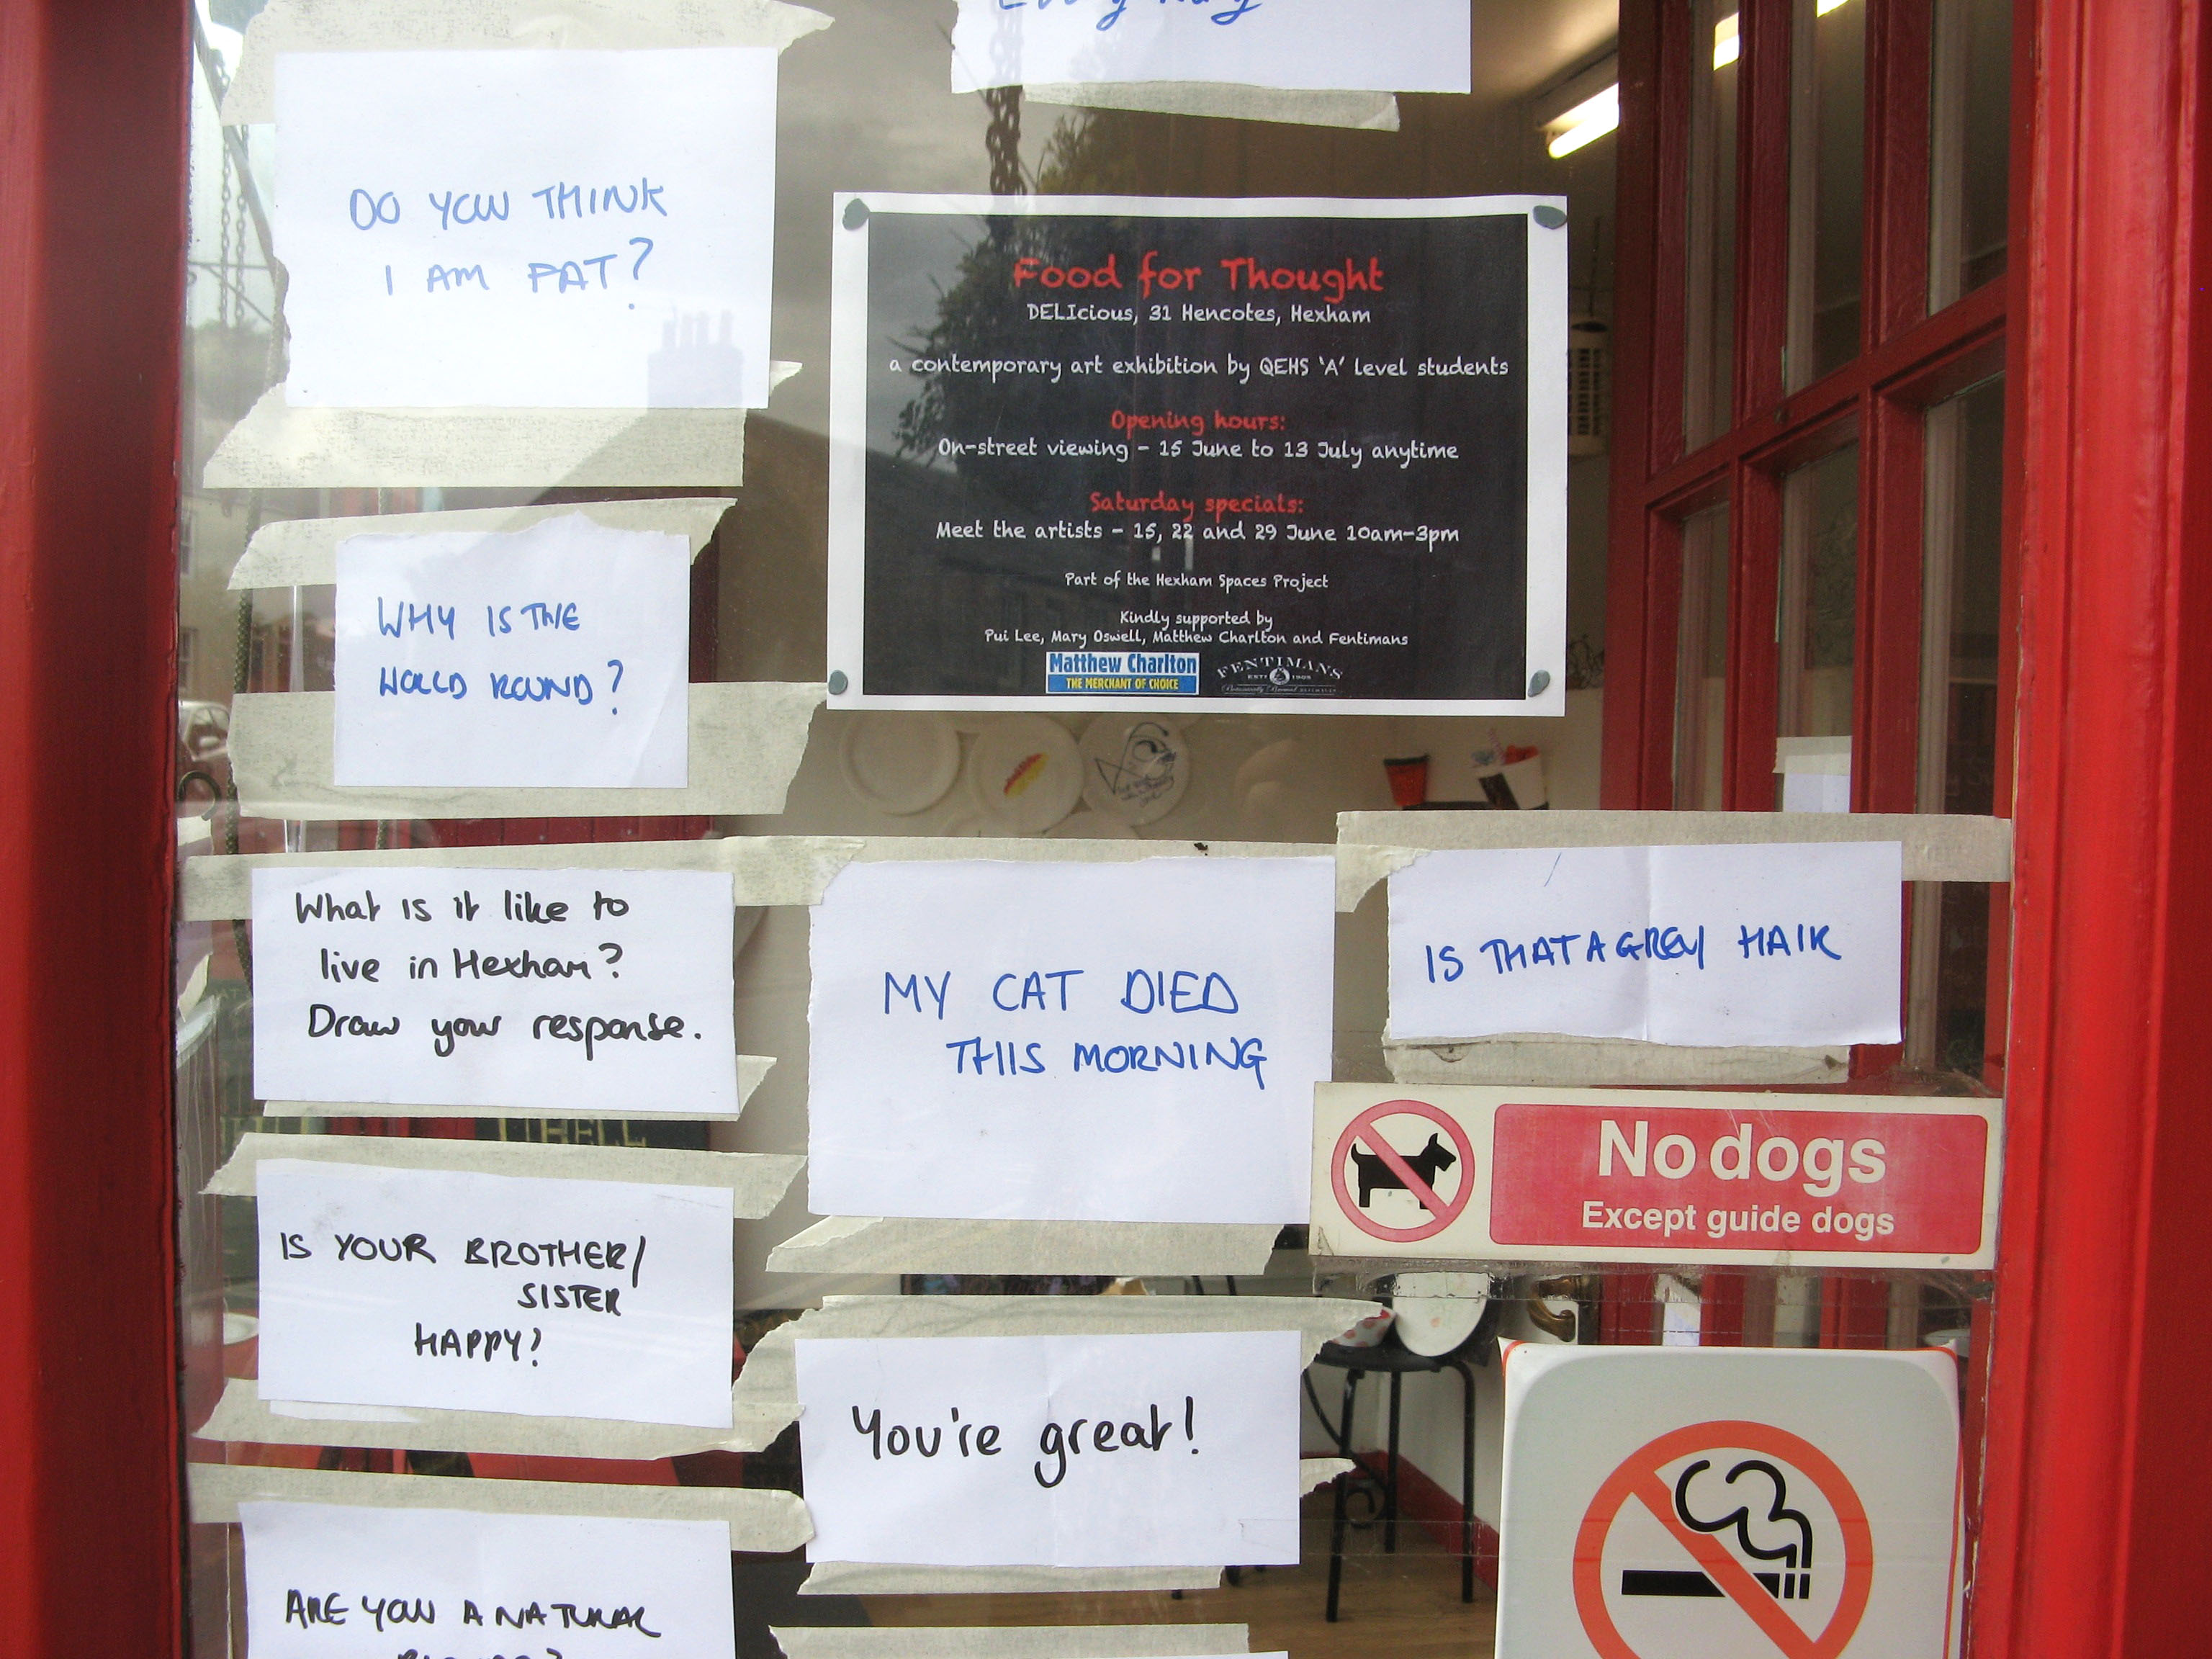 DO YOU THINK
I AM FAT?
Food for Thought
DELIcious, 31 Hencotes, Hexham
a contemporary art exhibition by QEHS 'A' level students
Opening hours:
On-street viewing - 15 June to 13 July anytime
Saturday specials:
Meet the artists - 15, 22 and 29 June 10am-3pm
Part of the Hexham Spaces Project
Kindly supported by
Pui Lee, Mary Oswell, Matthew Charlton and Fentimans
Matthew Charlton
THE MERCHANT OF CHOICE
FENTIMANS
ESTD 1905
WHY IS THE
WORLD ROUND?
What is it like to
live in Hexham?
Draw your response.
MY CAT DIED
THIS MORNING
IS THAT A GREY HAIR
No dogs
Except guide dogs
IS YOUR BROTHER/
SISTER
HAPPY?
You're great!
ARE YOU A NATURAL